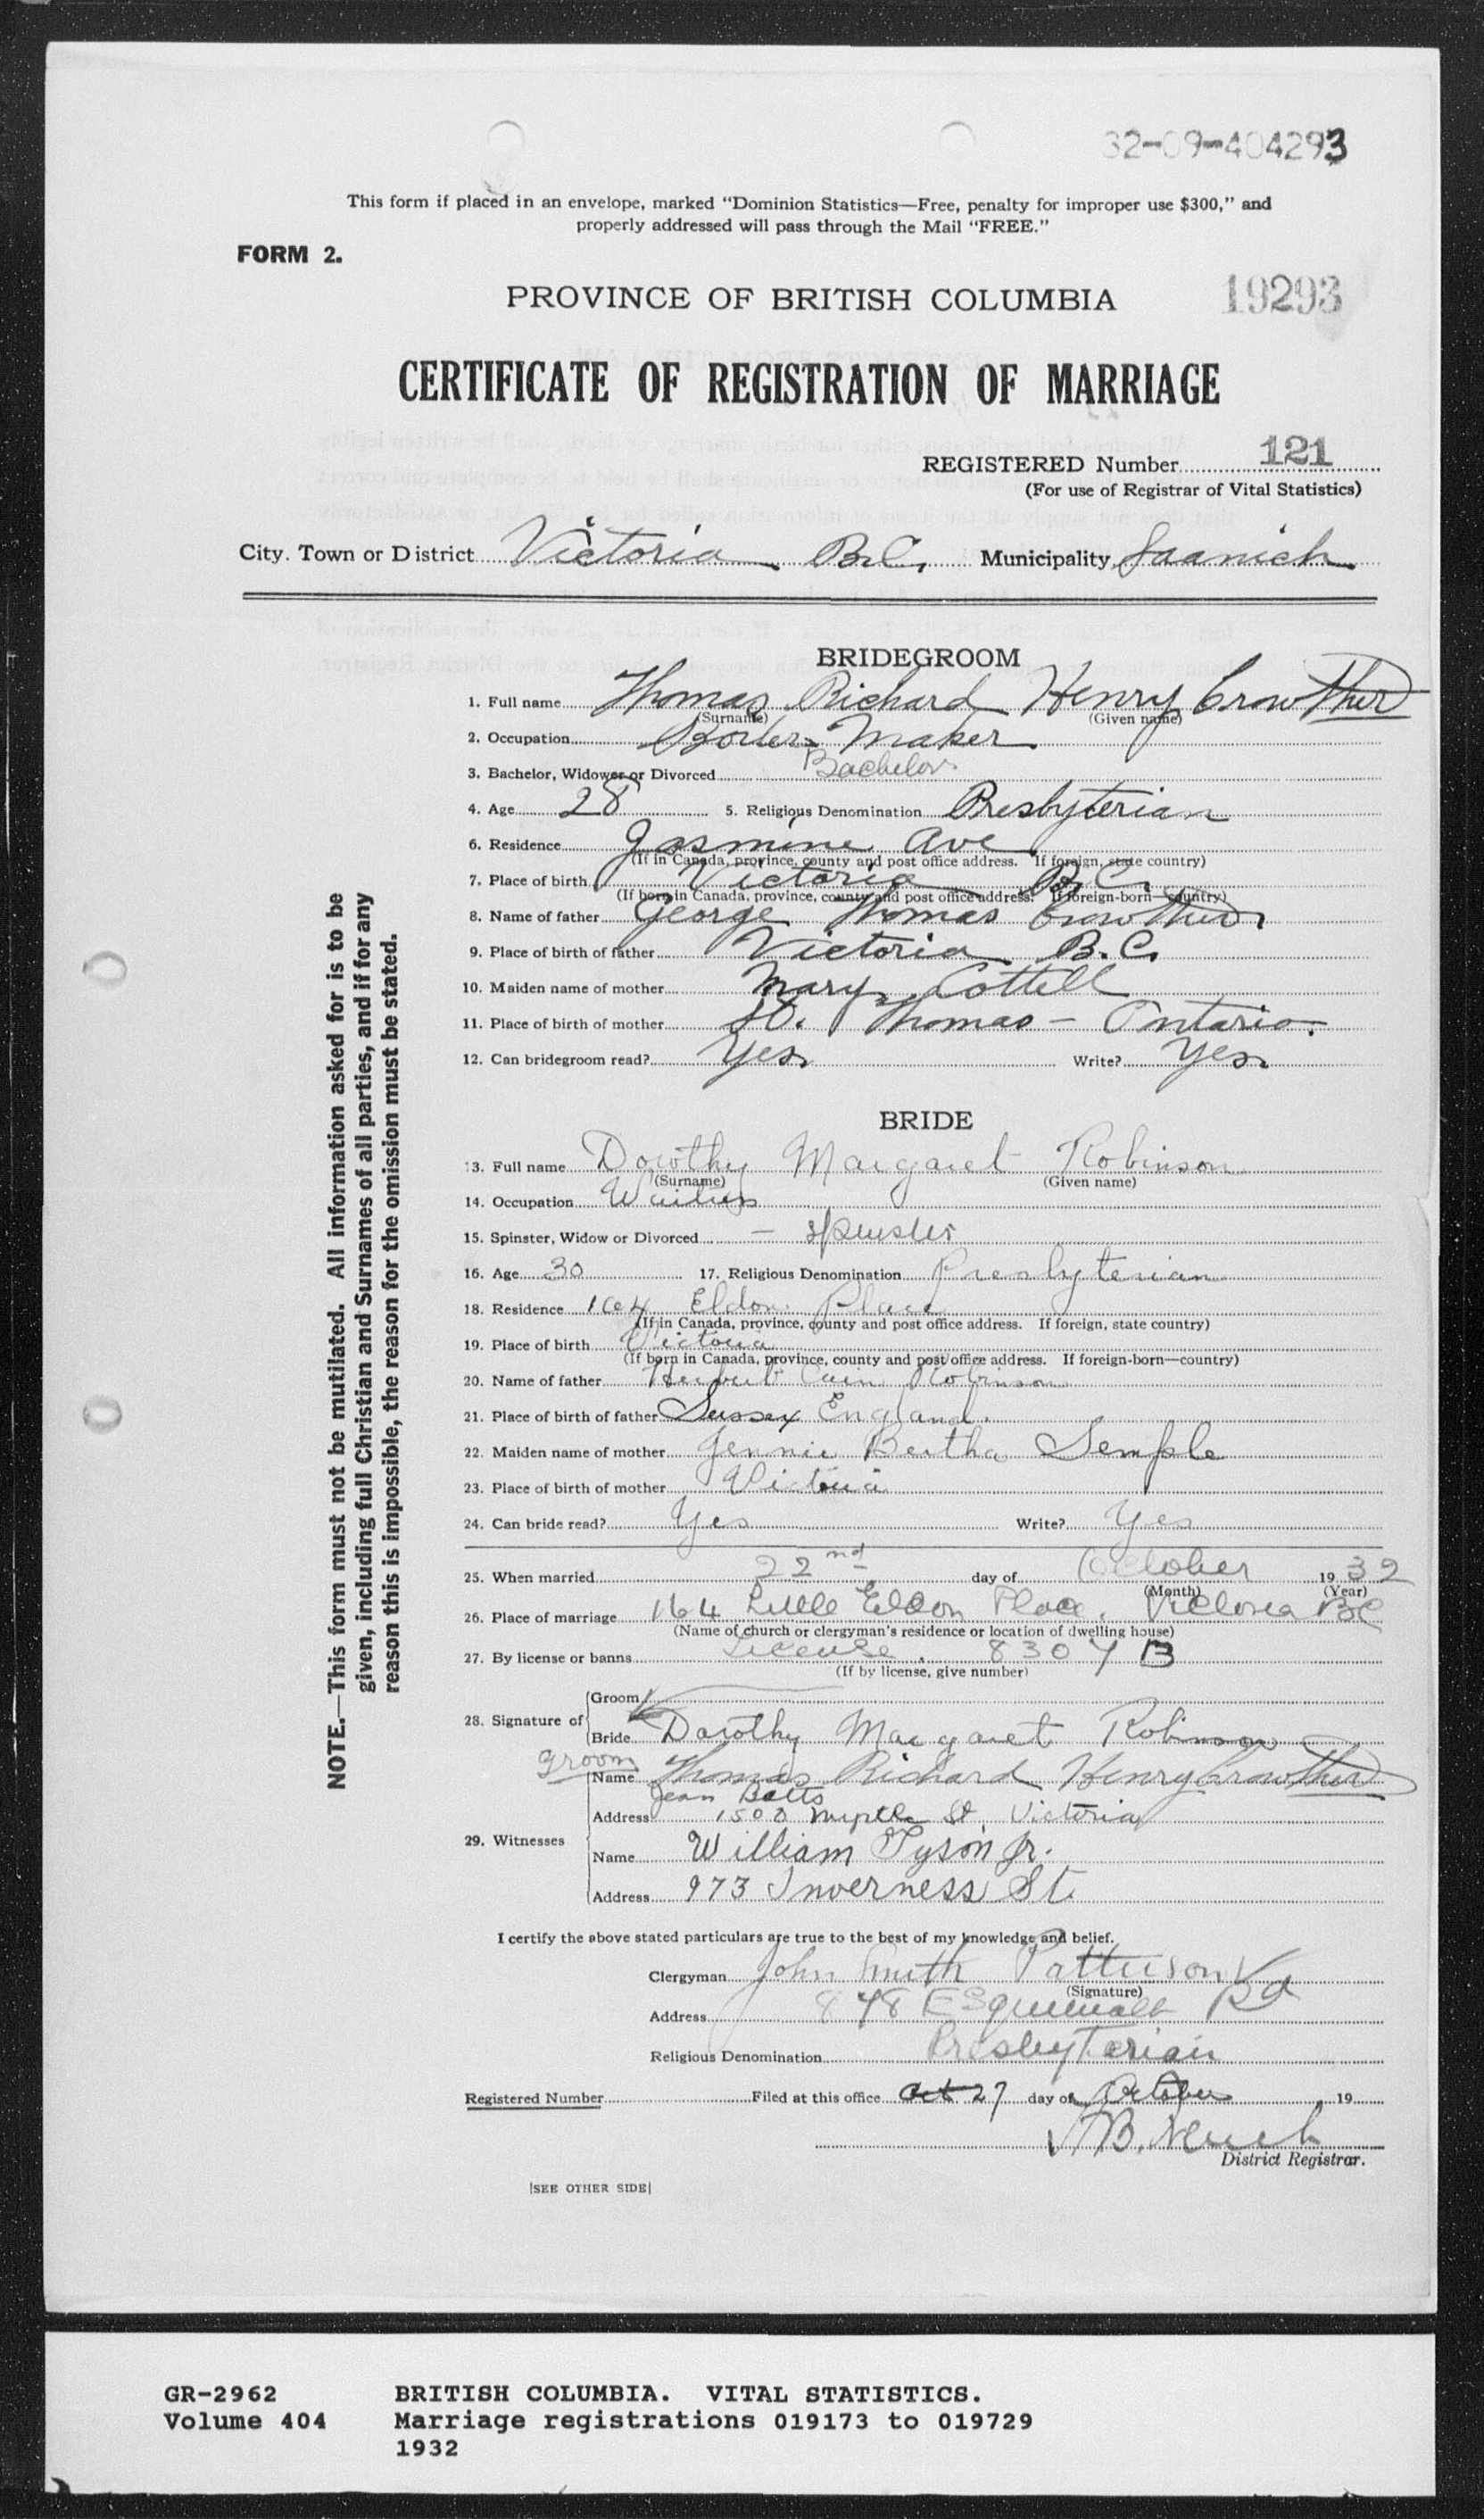 32-09-404293
This form if placed in an envelope, marked "Dominion Statistics—Free, penalty for improper use $300," and
properly addressed will pass through the Mail "FREE."
FORM 2.
PROVINCE OF BRITISH COLUMBIA
19293
CERTIFICATE OF REGISTRATION OF MARRIAGE
REGISTERED Number 121
(For use of Registrar of Vital Statistics)
City. Town or District Victoria B.C. Municipality Saanich
NOTE.—This form must not be mutilated. All information asked for is to be
given, including full Christian and Surnames of all parties, and if for any
reason this is impossible, the reason for the omission must be stated.
BRIDEGROOM
1. Full name Thomas Richard Henry Crowther
(Surname) (Given name)
2. Occupation Boiler Maker
3. Bachelor, Widower or Divorced Bachelor
4. Age 28 5. Religious Denomination Presbyterian
6. Residence Jasmine Ave
(If in Canada, province, county and post office address. If foreign, state country)
7. Place of birth Victoria B.C.
(If born in Canada, province, county and post office address. If foreign-born—country)
8. Name of father George Thomas Crowther
9. Place of birth of father Victoria B.C.
10. Maiden name of mother Mary Cottell
11. Place of birth of mother St. Thomas - Ontario.
12. Can bridegroom read? Yes Write? Yes
BRIDE
13. Full name Dorothy Margaret Robinson
(Surname) (Given name)
14. Occupation Waitress
15. Spinster, Widow or Divorced — Spinster
16. Age 30 17. Religious Denomination Presbyterian
18. Residence 164 Eldon Place
(If in Canada, province, county and post office address. If foreign, state country)
19. Place of birth Victoria
(If born in Canada, province, county and post office address. If foreign-born—country)
20. Name of father Herbert Robinson
21. Place of birth of father Sussex England.
22. Maiden name of mother Jennie Bertha Semple
23. Place of birth of mother Victoria
24. Can bride read? Yes Write? Yes
25. When married 22nd day of October 1932
(Month) (Year)
26. Place of marriage 164 Little Eldon Place. Victoria BC
(Name of church or clergyman's residence or location of dwelling house)
27. By license or banns License. 8307 B
(If by license, give number)
28. Signature of Groom
Bride Dorothy Margaret Robinson
groom
Name Thomas Richard Henry Crowther
Jean Batts
Address 1500 Myrtle St. Victoria
29. Witnesses
Name William Tyson Jr.
Address 973 Inverness St.
I certify the above stated particulars are true to the best of my knowledge and belief.
Clergyman John Smith Patterson
(Signature)
Address 878 Esquimalt Rd
Religious Denomination Presbyterian
Registered Number Filed at this office Oct 27 day of October 19
District Registrar.
[SEE OTHER SIDE]
GR-2962 BRITISH COLUMBIA. VITAL STATISTICS.
Volume 404 Marriage registrations 019173 to 019729
1932